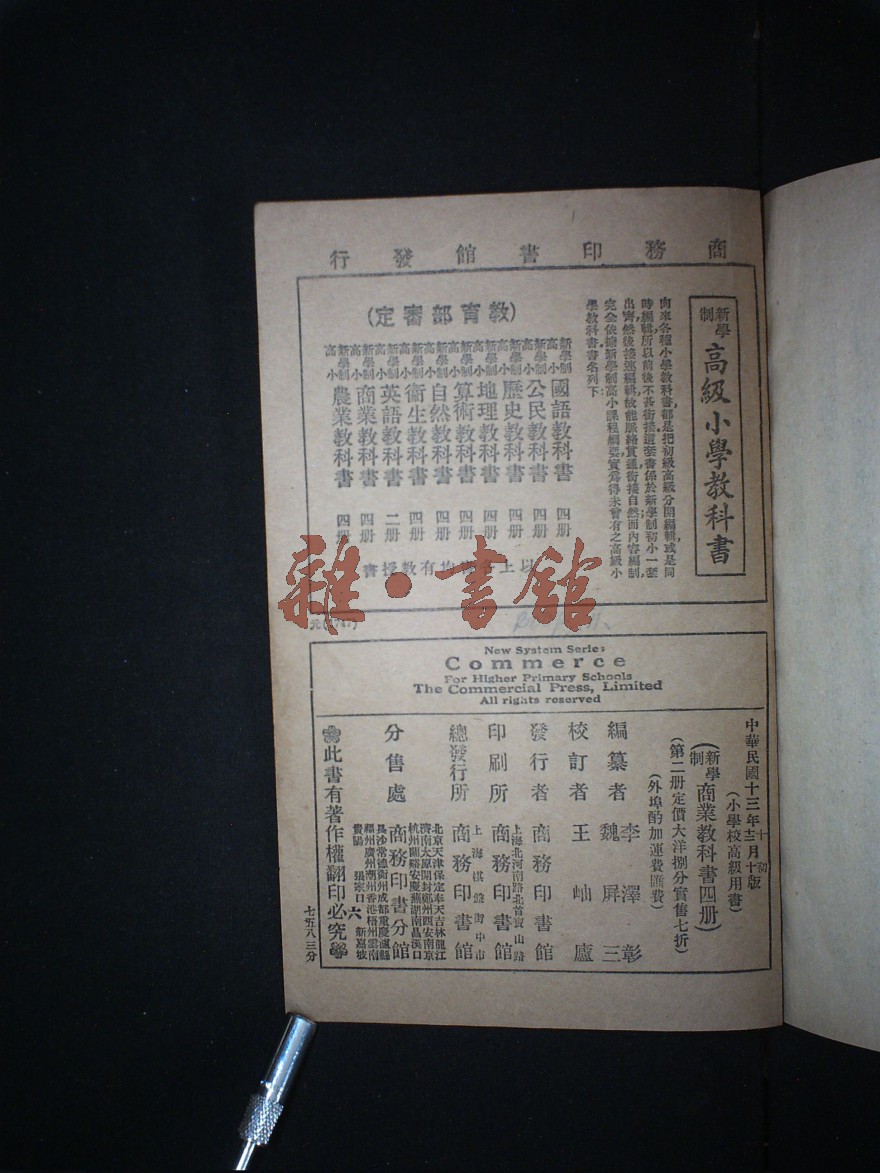 商務印書館發行
新學制 高級小學教科書
向來各種小學教科書,都是把初級高級分開編輯,或是同
時編輯,所以前後不甚銜接;這套書係於新學制初小一套
出齊然後接連編輯,故能脈絡貫通,銜接自然,而內容編制
完全依據新學制高小課程綱要,實爲得未曾有之高級小
學教科書,書名列下:
(教育部審定)
新學制高小 國語教科書 四册
新學制高小 公民教科書 四册
新學制高小 歷史教科書 四册
新學制高小 地理教科書 四册
新學制高小 算術教科書 四册
新學制高小 自然教科書 四册
新學制高小 衞生教科書 四册
新學制高小 英語教科書 二册
新學制高小 商業教科書 四册
新學制高小 農業教科書 四册
以上各 均有教授書
雜·書館
New System Series
Commerce
For Higher Primary Schools
The Commercial Press, Limited
All rights reserved
中華民國十三年
(小學校高級用書)
(新學制 商業教科書四册)
(第二册定價大洋捌分實售七折)
(外埠酌加運費匯費)
編纂者 李澤彰 魏屏三
校訂者 王岫廬
發行者 商務印書館
印刷所 上海北河南路北首寶山路 商務印書館
總發行所 上海棋盤街中市 商務印書館
分售處 北京天津保定奉天吉林龍江
濟南太原開封鄭州西安南京
杭州蘭谿安慶蕪湖南昌漢口
商務印書分館
長沙常德衡州成都重慶瀘縣
福州廣州潮州香港梧州雲南
貴陽 張家口 新嘉坡
此書有著作權翻印必究
六
七五八三分